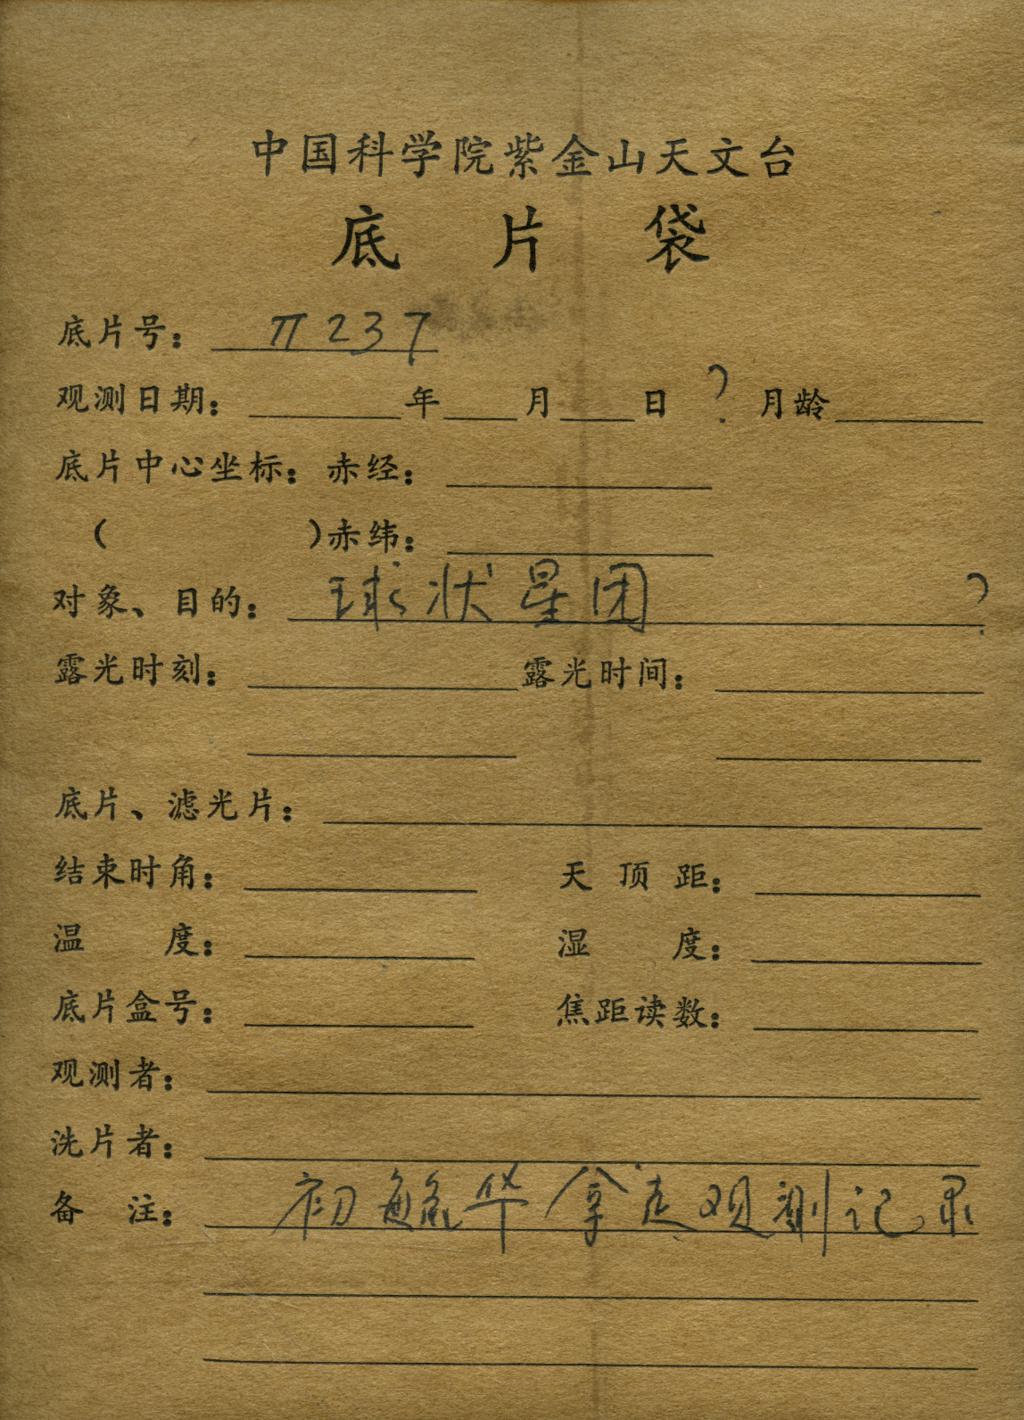 中国科学院紫金山天文台
底片袋
底片号： π237
观测日期： 年 月 日 ? 月龄
底片中心坐标：赤经：
( )赤纬：
对象、目的： 球状星团 ?
露光时刻： 露光时间：
底片、滤光片：
结束时角： 天顶距：
温度： 湿度：
底片盒号： 焦距读数：
观测者：
洗片者：
备注： 初毓华拿走观测记录